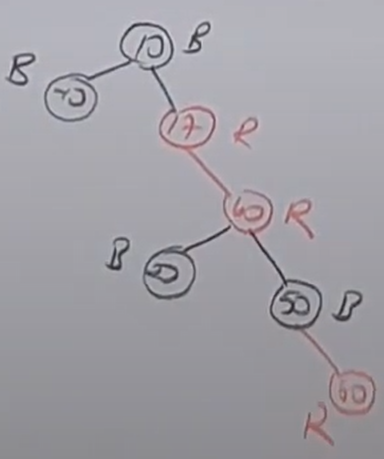 10 B
B
17 R
40 R
B
50 B
60
R